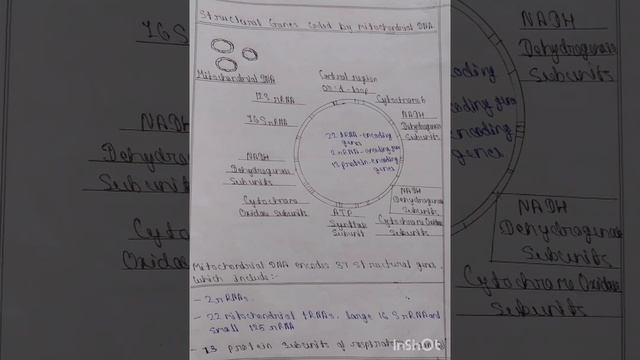 Structural Genes Coded by Mitochondrial DNA
Mitochondrial DNA
Control region
OR d-loop
12S rRNA
Cytochrome b
16S rRNA
NADH
Dehydrogenase
Subunits
22 tRNA-encoding
genes
2 rRNA-encoding genes
13 protein-encoding
genes
NADH
Dehydrogenase
Subunits
NADH
Dehydrogenase
Subunits
Cytochrome
Oxidase subunits
ATP
Synthase
Subunit
Cytochrome Oxidase
Subunits
Mitochondrial DNA encodes 37 structural genes,
which include:-
- 2 rRNAs.
- 22 mitochondrial tRNAs, large 16 S rRNA and
small 12S rRNA
- 13 protein subunits of respiratory
InShOt
16S
NADH
Dehydrogenase
Subunits
Cyto
Oxidase
NADH
Dehydrogenase
Subunits
coding
encoding
genes
NADH
Dehydrogenase
Subunits
Cytochrome Oxidase
Subunits